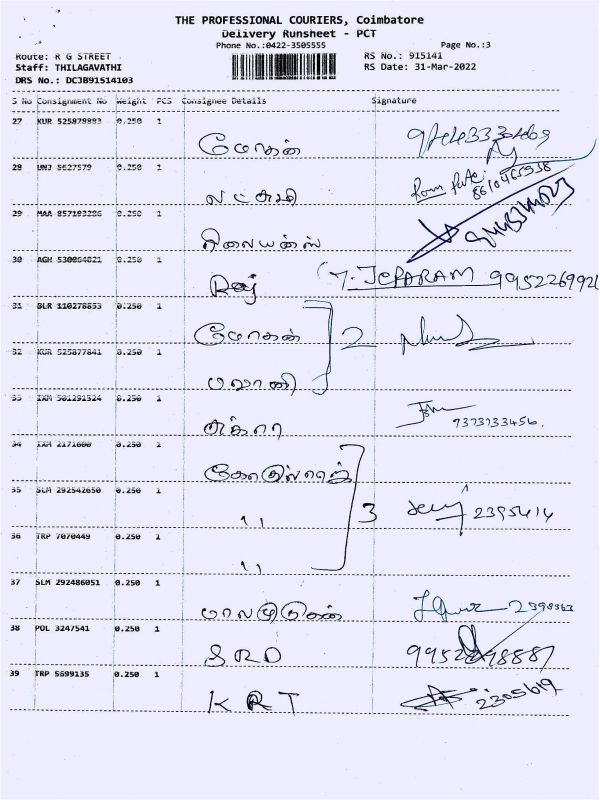 THE PROFESSIONAL COURIERS, Coimbatore
Delivery Runsheet - PCT
Phone No.:0422-3505555 Page No.:3
Route: R G STREET RS No.: 9I5141
Staff: THILAGAVATHI RS Date: 31-Mar-2022
DRS No.: DCJB91514103
S No Consignment No Weight PCS Consignee Details Signature
27 KUR 525878983 0.250 1
மோகன்
28 UNJ 5627579 0.250 1
லட்சுமி 8610465938
29 MAA 0.250 1
ரிலையன்ஸ்
30 AGH 530864821 0.250 1
Raj T. JEPARAM
31 BLR 110278853 0.250 1
மோகன் 2
32 KUR 525877841 0.250 1
பழனி
33 IXM 501291524 0.250 1
7373733456.
34 IXM 2171600 0.250 1
கோகுல்ராஜ்
35 SLM 292542650 0.250 1
,, 3 2395414
36 TRP 7070449 0.250 1
,,
37 SLM 292486051 0.250 1
பாலமுருகன்
38 POL 3247541 0.250 1
SRD
39 TRP 5699135 0.250 1
KRT 2305619